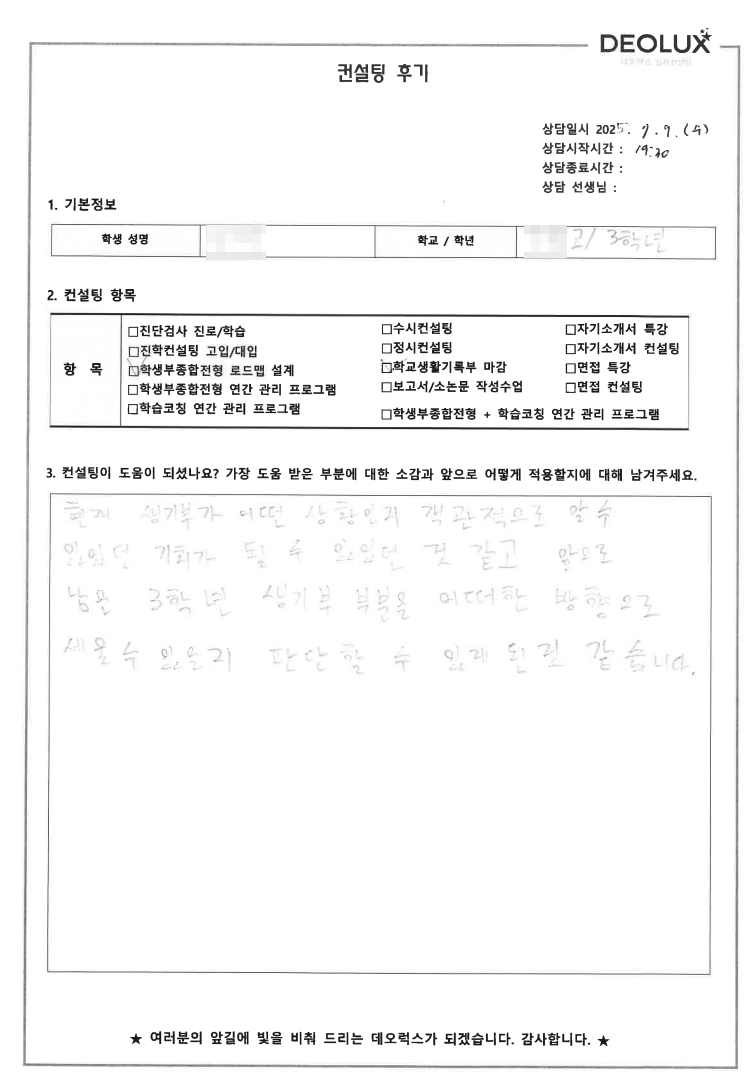 DEOLUX
데오럭스 입시컨설팅
컨설팅 후기
상담일시 2025. 7. 9. (수)
상담시작시간 : 19:30
상담종료시간 :
상담 선생님 :
1. 기본정보
학생 성명 학교 / 학년 고/ 3학년
2. 컨설팅 항목
항 목
□진단검사 진로/학습 □수시컨설팅 □자기소개서 특강
□진학컨설팅 고입/대입 □정시컨설팅 □자기소개서 컨설팅
☑학생부종합전형 로드맵 설계 ☑학교생활기록부 마감 □면접 특강
□학생부종합전형 연간 관리 프로그램 □보고서/소논문 작성수업 □면접 컨설팅
□학습코칭 연간 관리 프로그램 □학생부종합전형 + 학습코칭 연간 관리 프로그램
3. 컨설팅이 도움이 되셨나요? 가장 도움 받은 부분에 대한 소감과 앞으로 어떻게 적용할지에 대해 남겨주세요.
현재 생기부가 어떤 상황인지 객관적으로 알 수
있었던 기회가 될 수 있었던 것 같고 앞으로
남은 3학년 생기부 부분을 어떠한 방향으로
세울 수 있을지 판단할 수 있게 된것 같습니다.
★ 여러분의 앞길에 빛을 비춰 드리는 데오럭스가 되겠습니다. 감사합니다. ★